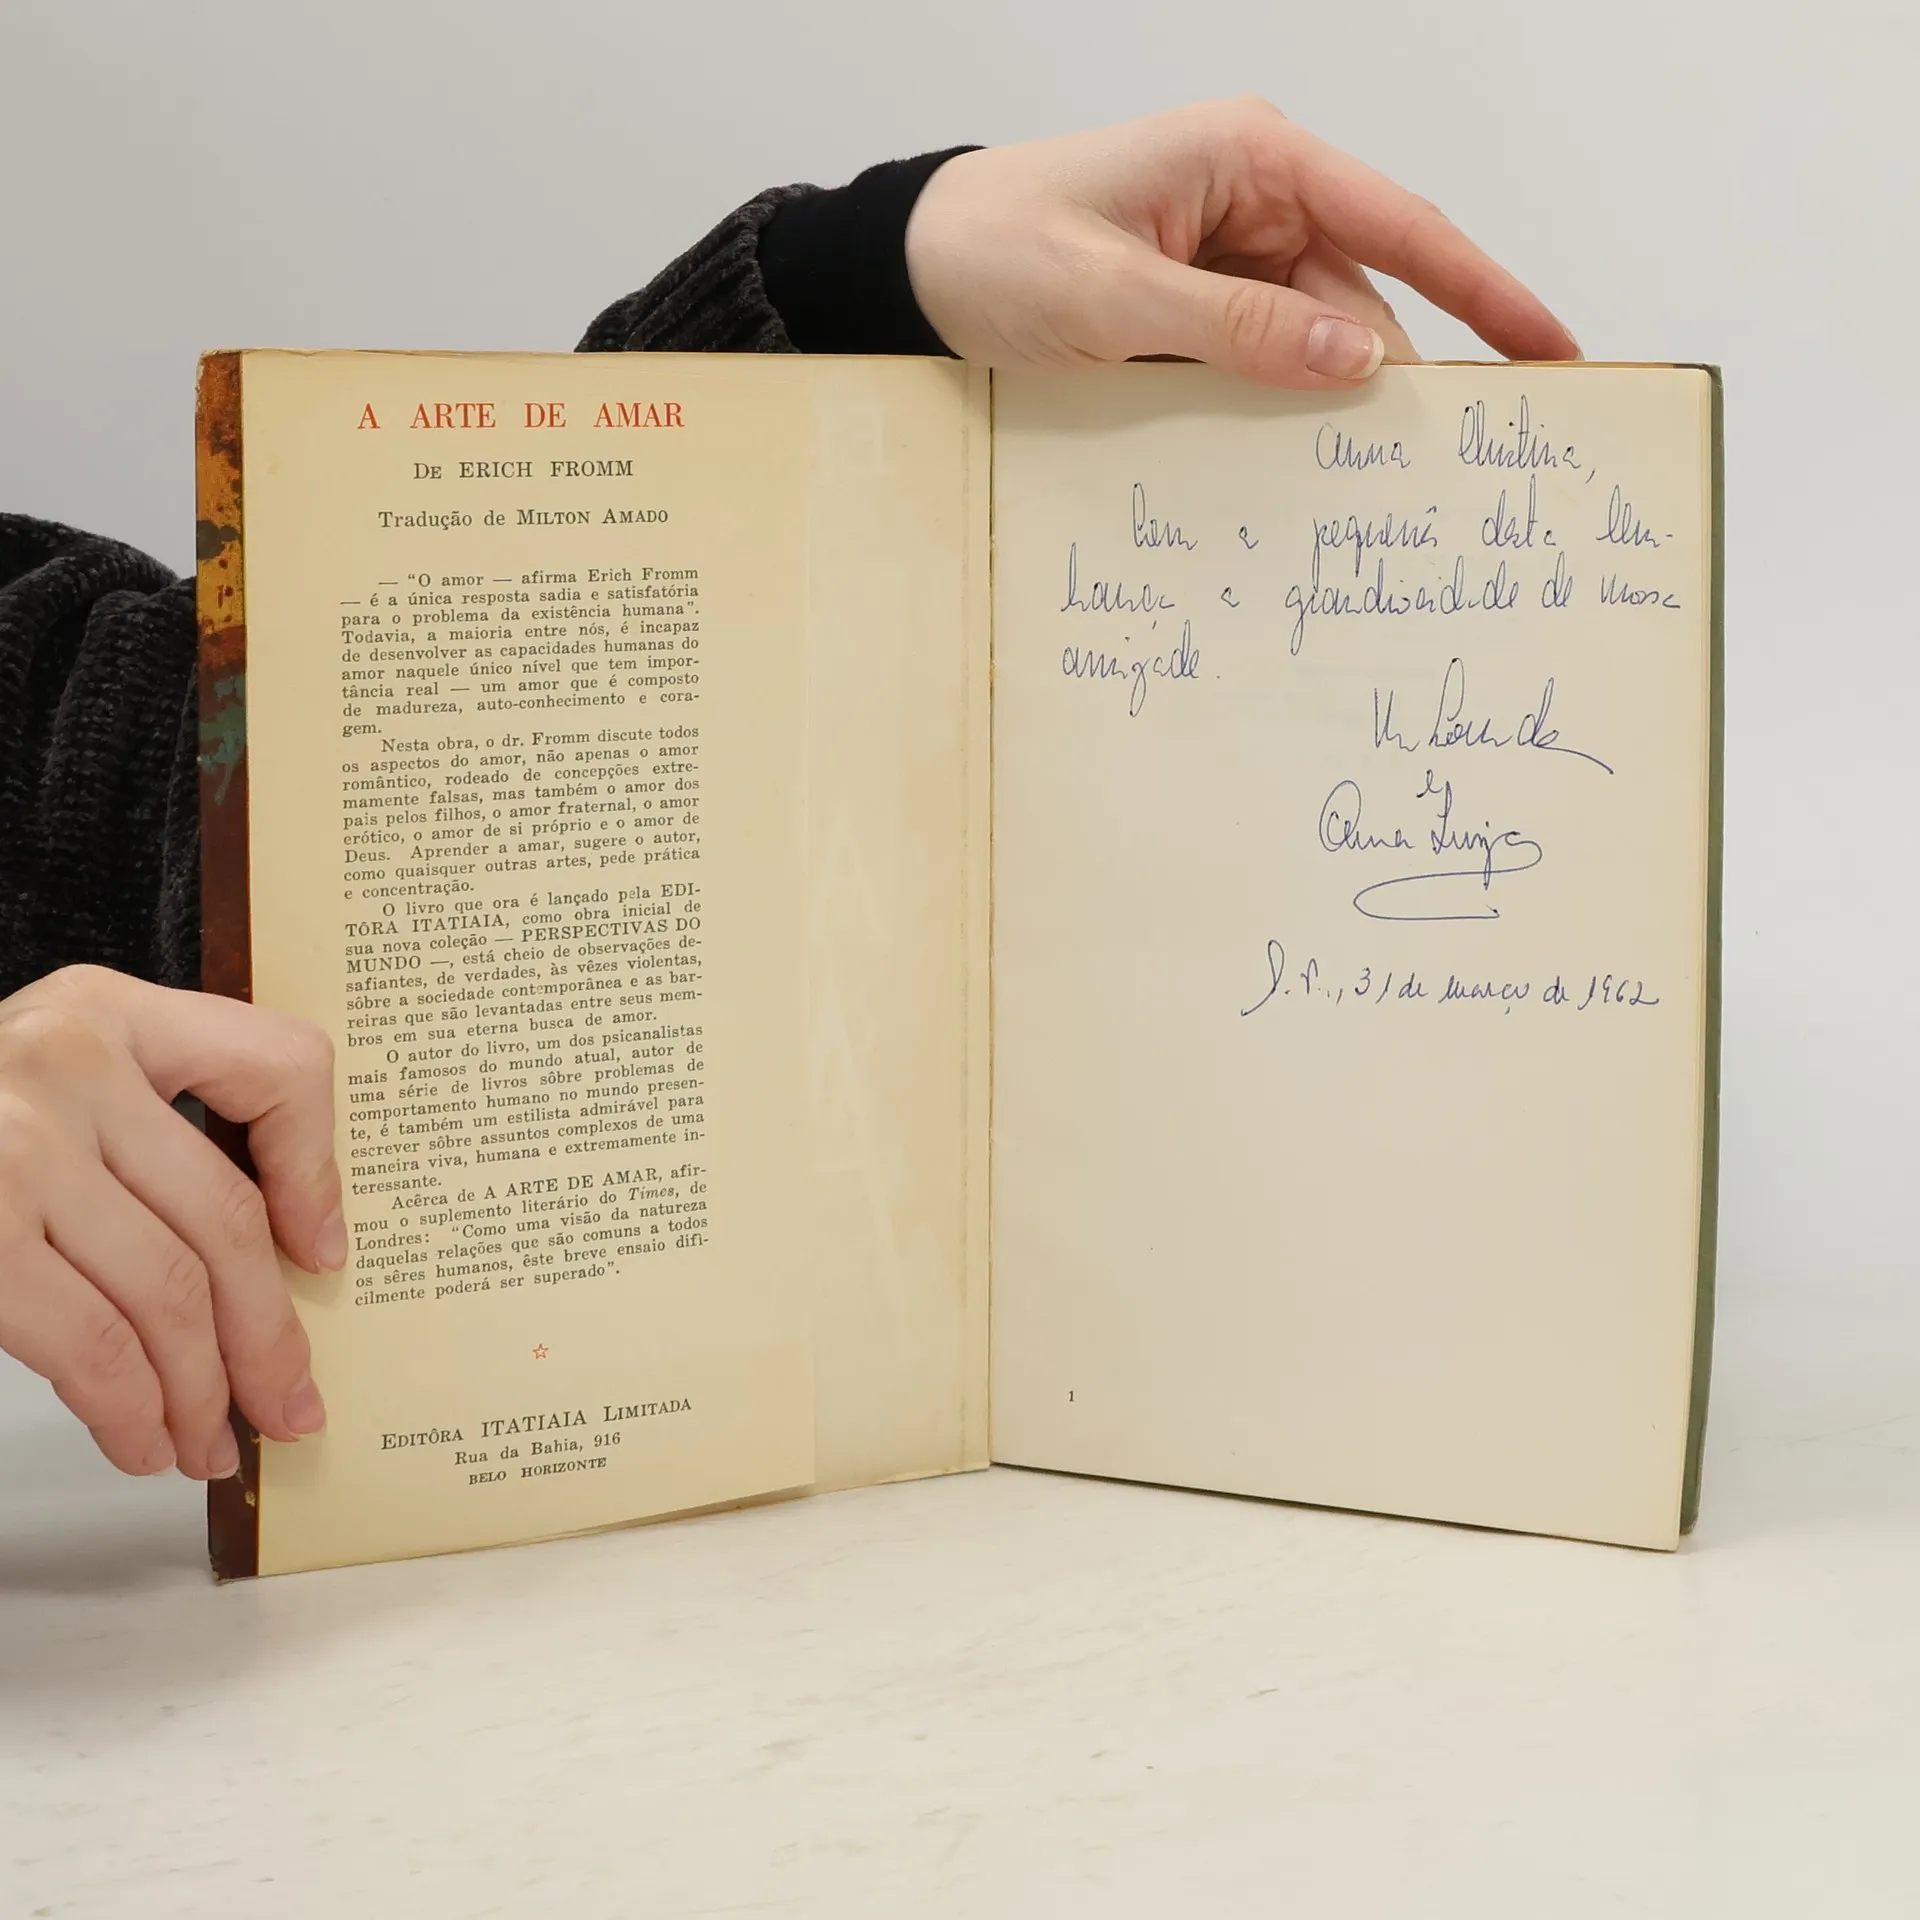 A ARTE DE AMAR
DE ERICH FROMM
Tradução de MILTON AMADO
— “O amor — afirma Erich Fromm
— é a única resposta sadia e satisfatória
para o problema da existência humana”.
Todavia, a maioria entre nós, é incapaz
de desenvolver as capacidades humanas do
amor naquele único nível que tem impor-
tância real — um amor que é composto
de madureza, auto-conhecimento e cora-
gem.
Nesta obra, o dr. Fromm discute todos
os aspectos do amor, não apenas o amor
romântico, rodeado de concepções extre-
mamente falsas, mas também o amor dos
pais pelos filhos, o amor fraternal, o amor
erótico, o amor de si próprio e o amor de
Deus. Aprender a amar, sugere o autor,
como quaisquer outras artes, pede prática
e concentração.
O livro que ora é lançado pela EDI-
TÔRA ITATIAIA, como obra inicial de
sua nova coleção — PERSPECTIVAS DO
MUNDO —, está cheio de observações de-
safiantes, de verdades, às vêzes violentas,
sôbre a sociedade contemporânea e as bar-
reiras que são levantadas entre seus mem-
bros em sua eterna busca de amor.
O autor do livro, um dos psicanalistas
mais famosos do mundo atual, autor de
uma série de livros sôbre problemas de
comportamento humano no mundo presen-
te, é também um estilista admirável para
escrever sôbre assuntos complexos de uma
maneira viva, humana e extremamente in-
teressante.
Acêrca de A ARTE DE AMAR, afir-
mou o suplemento literário do Times, de
Londres: “Como uma visão da natureza
daquelas relações que são comuns a todos
os sêres humanos, êste breve ensaio difi-
cilmente poderá ser superado”.
EDITÔRA ITATIAIA LIMITADA
Rua da Bahia, 916
BELO HORIZONTE
Anna Christina,
Com a pequenês desta lem-
brança a grandiosidade de nossa
amizade.
e
Anna Luiza
31 de março de 1962
1